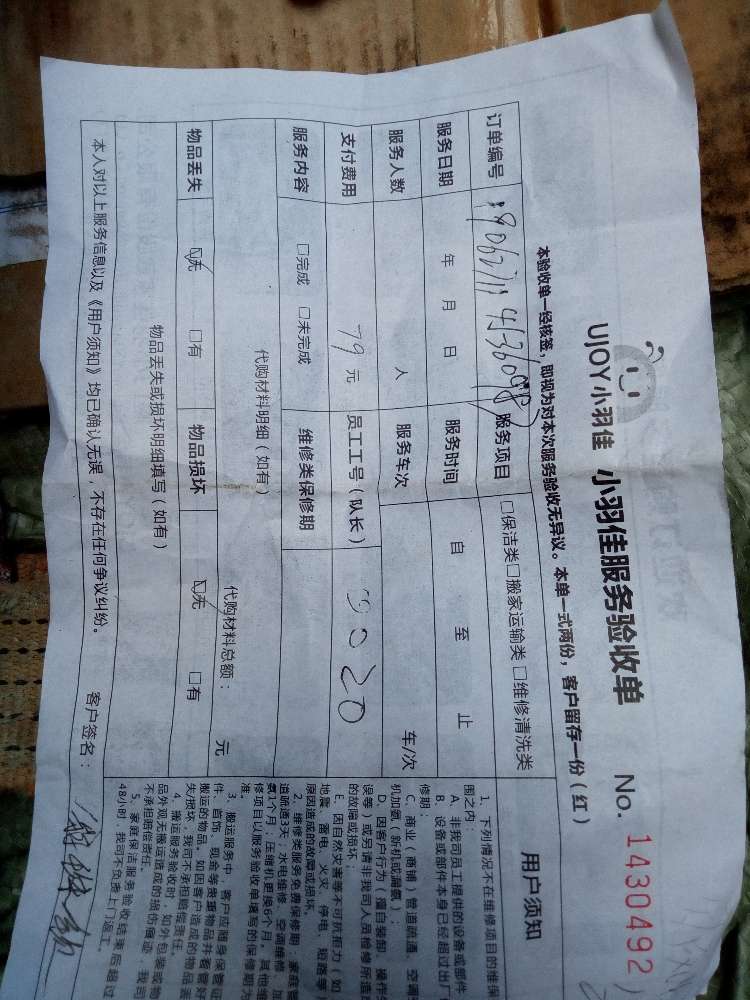 UJOY小羽佳 小羽佳服务验收单 No. 1430492
本验收单一经核签，即视为对本次服务验收无异议。本单一式两份，客户留存一份（红）
订单编号 服务项目 □保洁类□搬家运输类□维修清洗类
服务日期 年 月 日 服务时间 自 至 止
服务人数 人 服务车次 车/次
支付费用 79 元 员工工号（队长） 9020
服务内容 □完成 □未完成 维修类保修期
代购材料明细（如有） 代购材料总额： 元
物品丢失 ☑无 □有 物品损坏 ☑无 □有
物品丢失或损坏明细填写（如有）
本人对以上服务信息以及《用户须知》均已确认无误，不存在任何争议纠纷。 客户签名：
用户须知
1、下列情况不在维修项目的维保
围之内：
A、非我司员工提供的设备或部件
B、设备或部件本身已经超过出厂
修期；
C、商业（商铺）管道疏通、空调
机加氨（新机或漏氨）；
D、因客户行为（擅自装卸、操作
误等）或另请非我司人员检修所造
的故障或损坏；
E、因自然灾害等不可抗拒力（如
地震、雷电、火灾、停电、短路等
原因造成的故障或损坏。
2、维修类服务免费保修期：家庭管
道疏通3天；水电维修、空调维修、加
氨1个月；压缩机更换6个月，其他维
修项目以服务验收单填写的保修期为
准。
3、搬运服务中，客户应随身保管证
件、首饰、现金等贵重物品并看管好
搬运的物品，如因客户造成的物品丢
失/损坏，我司不承担赔偿责任。
4、搬运服务验收时，如外包装或物
品外观无搬运造成的损伤痕迹，我司
不承担赔偿责任。
5、家庭保洁服务验收结束后超过
48小时，我司不负责上门返工。